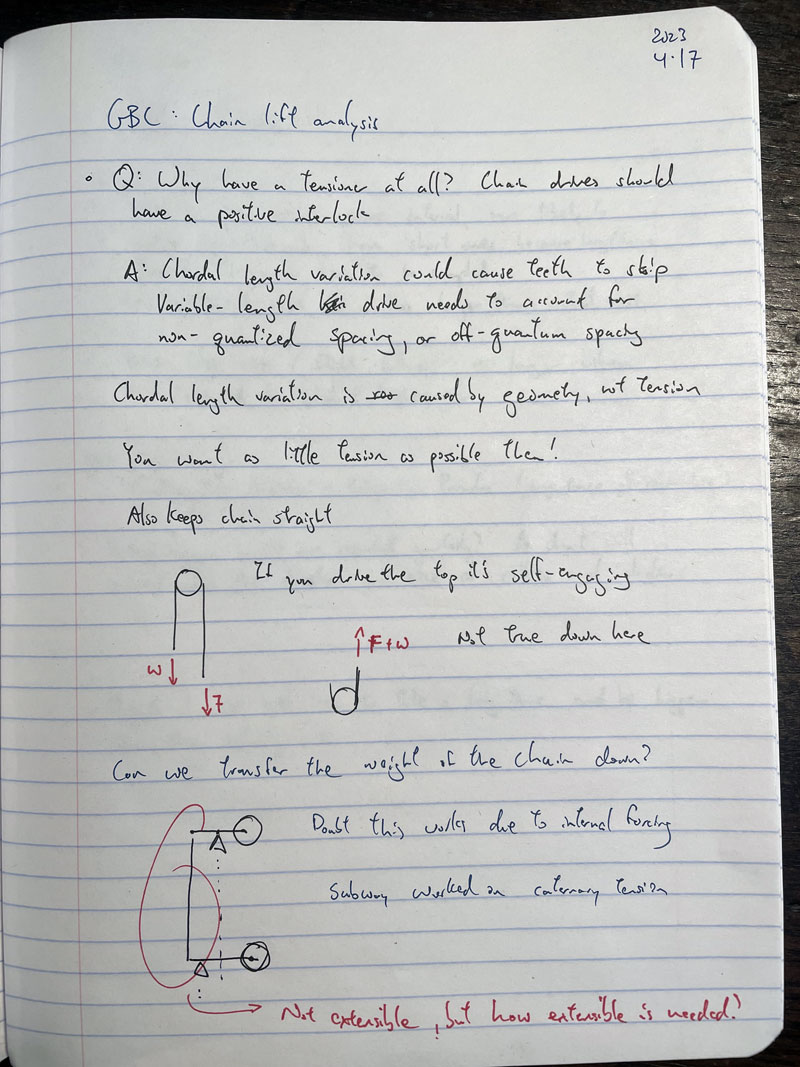 2023
4.17
GBC: Chain lift analysis
• Q: Why have a tensioner at all? Chain drives should
have a positive interlock
A: Chordal length variation could cause teeth to skip
Variable-length drive needs to account for
non-quantized spacing, or off-quantum spacing
Chordal length variation is caused by geometry, not tension
You want as little tension as possible then!
Also keeps chain straight
If you drive the top it's self-engaging
F+W Not true down here
W
F
Can we transfer the weight of the chain down?
Doubt this works due to internal forcing
Subway worked on catenary tension
Not extensible, but how extensible is needed?